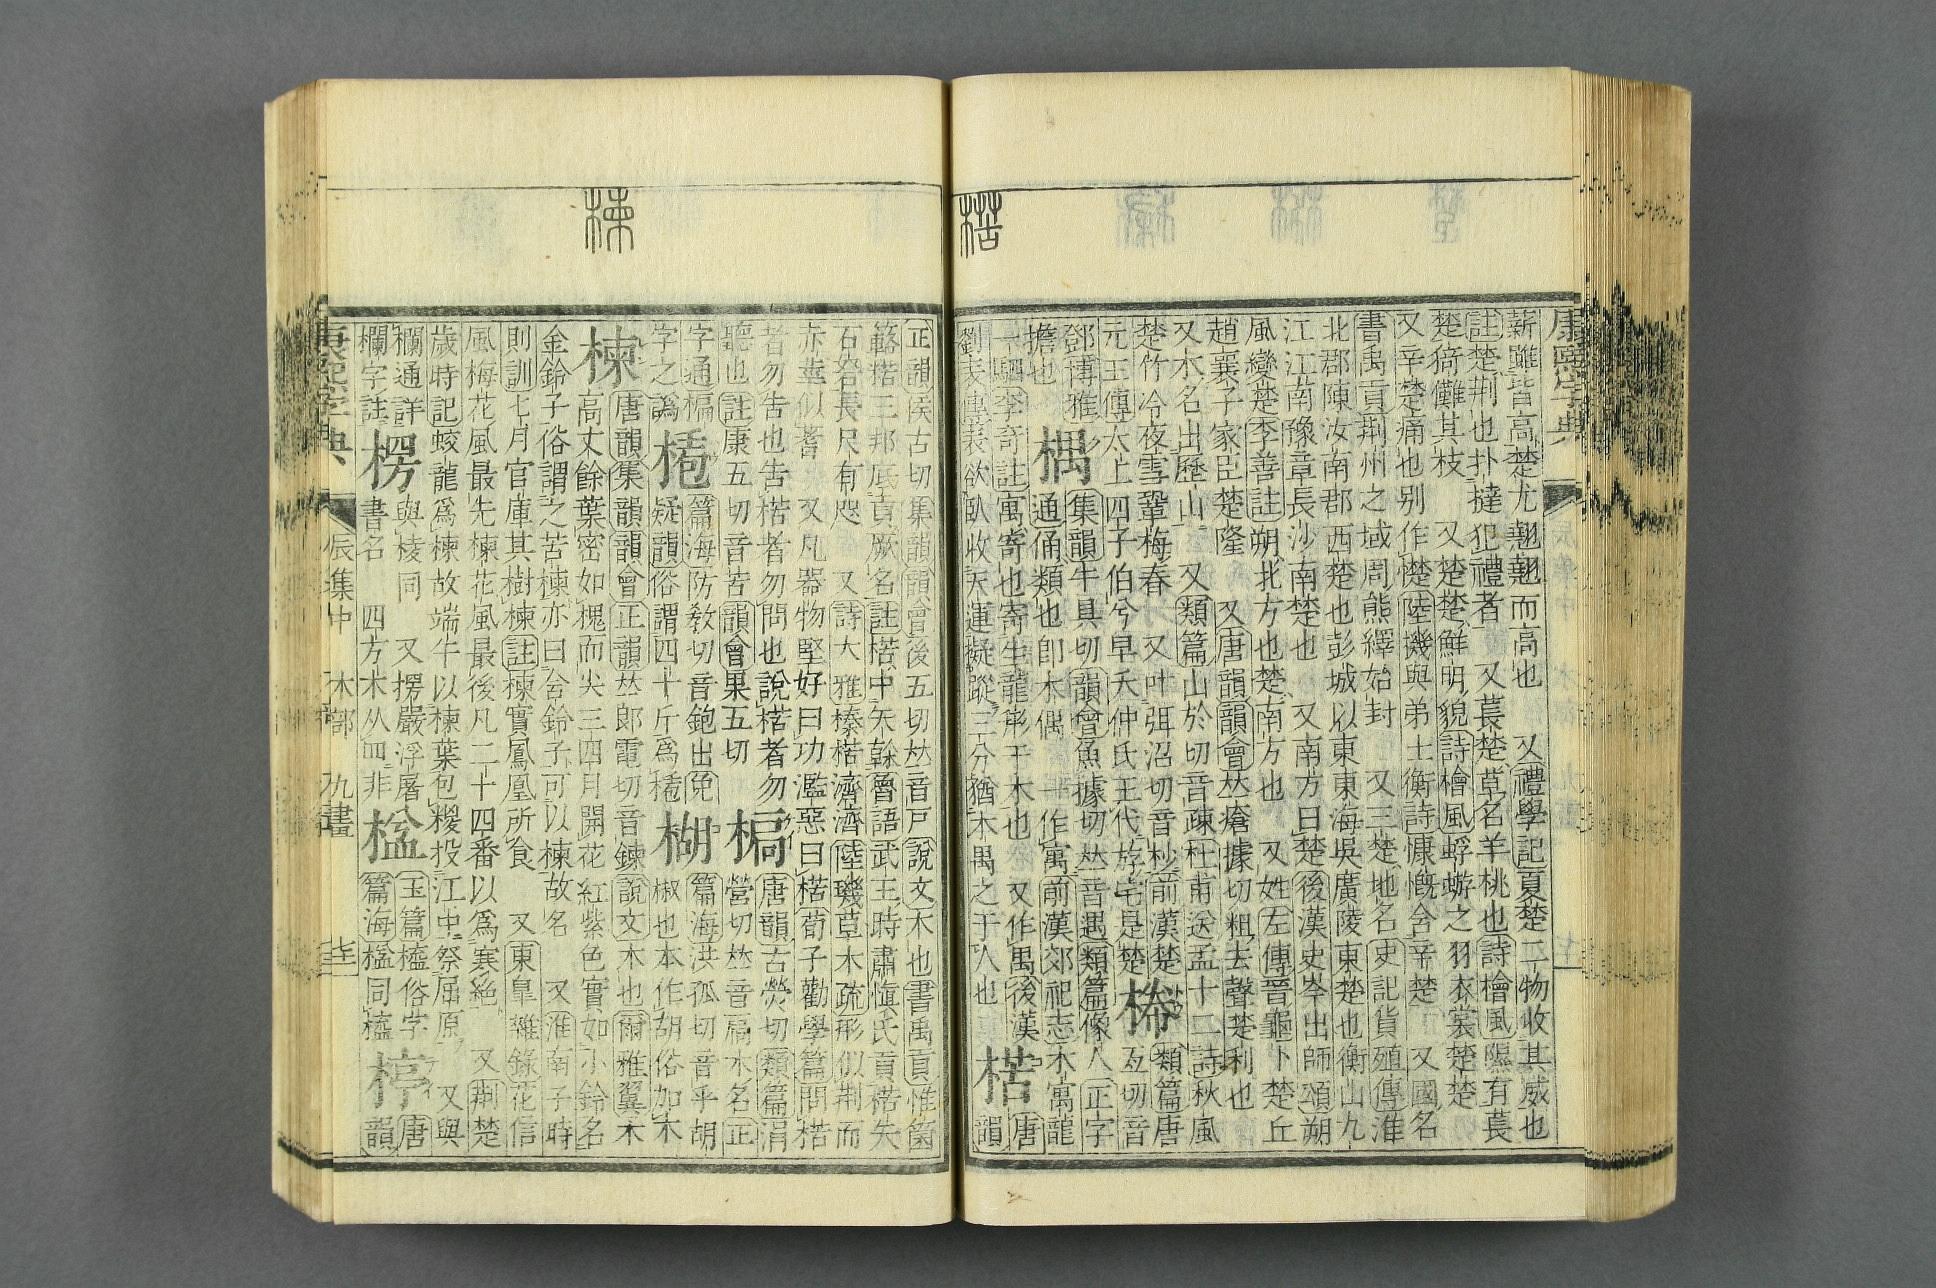 楛
康熙字典
薪雖皆高楚尤翹翹而高也 又禮學記夏楚二物收其威也
註楚荆也扑撻犯禮者 又萇楚草名羊桃也詩檜風隰有萇
楚猗儺其枝 又楚楚鮮明貌詩檜風蜉蝣之羽衣裳楚楚
又辛楚痛也别作憷陸機與弟士衡詩慷慨含辛楚 又國名
書禹貢荆州之域周熊繹始封 又三楚地名史記貨殖傳淮
北郡陳汝南郡西楚也彭城以東東海吳廣陵東楚也衡山九
江江南豫章長沙南楚也 又南方曰楚後漢史岑出師頌朔
風變楚李善註朔北方也楚南方也 又姓左傳晉龜卜楚丘
趙襄子家臣楚隆 又唐韻韻會𠀤瘡據切粗去聲楚利也
又木名出歷山 又類篇山於切音疎杜甫送孟十二詩秋風
楚竹冷夜雪鞏梅春 又叶弭沼切音杪前漢楚
元王傳太上四子伯兮早夭仲氏王代斿宅是楚
類篇唐
互切音
鄧博雅
擔也
集韻牛具切韻會魚據切𠀤音遇類篇像人
通俑類也卽木偶 一作寓前漢郊祀志木寓龍
正字
一駟李奇註寓寄也寄生龍形于木也 又作禺後漢
劉表傳表欲臥收天運擬蹤三分猶木禺之于人也
楛
唐
韻
楝
正韻侯古切集韻韻會後五切𠀤音戶說文木也書禹貢惟箘
簵楛三邦底貢厥名註楛中矢榦魯語武王時肅愼氏貢楛矢
石砮長尺有咫 又詩大雅榛楛濟濟陸璣草木疏形似荆而
赤莖似蓍 又凡器物堅好曰功濫惡曰楛荀子勸學篇問楛
者勿吿也吿楛者勿問也說楛者勿
聽也註康五切音苦韻會果五切
唐韻古熒切類篇涓
營切𠀤音扃木名正
字通
字之譌
篇海防敎切音鉋出免
疑韻俗謂四十斤爲
楜
篇海洪孤切音乎胡
椒也本作胡俗加木
楝
唐韻集韻韻會正韻𠀤郎電切音鍊說文木也爾雅翼木
高丈餘葉密如槐而尖三四月開花紅紫色實如小鈴名
金鈴子俗謂之苦楝亦曰含鈴子可以楝故名 又淮南子時
則訓七月官庫其樹楝註楝實鳳凰所食 又東臯雜錄花信
風梅花風最先楝花風最後凡二十四番以爲寒絶 又荆楚
歲時記蛟龍爲楝故端午以楝葉包糉投江中祭屈原 又與
欄通詳
欄字註
楞
與棱同 又楞嚴浮屠
書名 四方木从四非
玉篇榼俗字
篇海同榼
楟
唐
韻
康熙字典 辰集中 木部 九畫